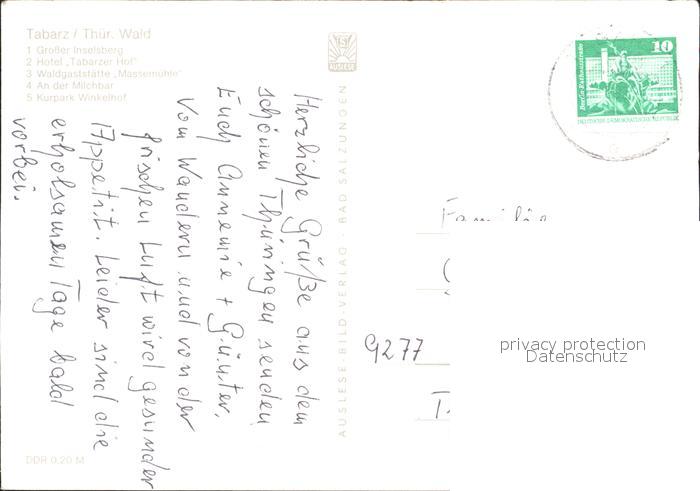 Tabarz / Thür. Wald
1 Großer Inselsberg
2 Hotel „Tabarzer Hof“
3 Waldgaststätte „Massemühle“
4 An der Milchbar
5 Kurpark Winkelhof
Herzliche Grüße aus dem
schönen Thüringen senden
Euch Annemie + Günter.
Vom Wandern und von der
frischen Luft wird gesunder
Appetit. Leider sind die
erholsamen Tage bald
vorbei.
DDR 0,20 M
AUSLESE-BILD-VERLAG · BAD SALZUNGEN
10
Berlin · Rathausstraße
DEUTSCHE DEMOKRATISCHE REPUBLIK
Familie
9277
privacy protection
Datenschutz